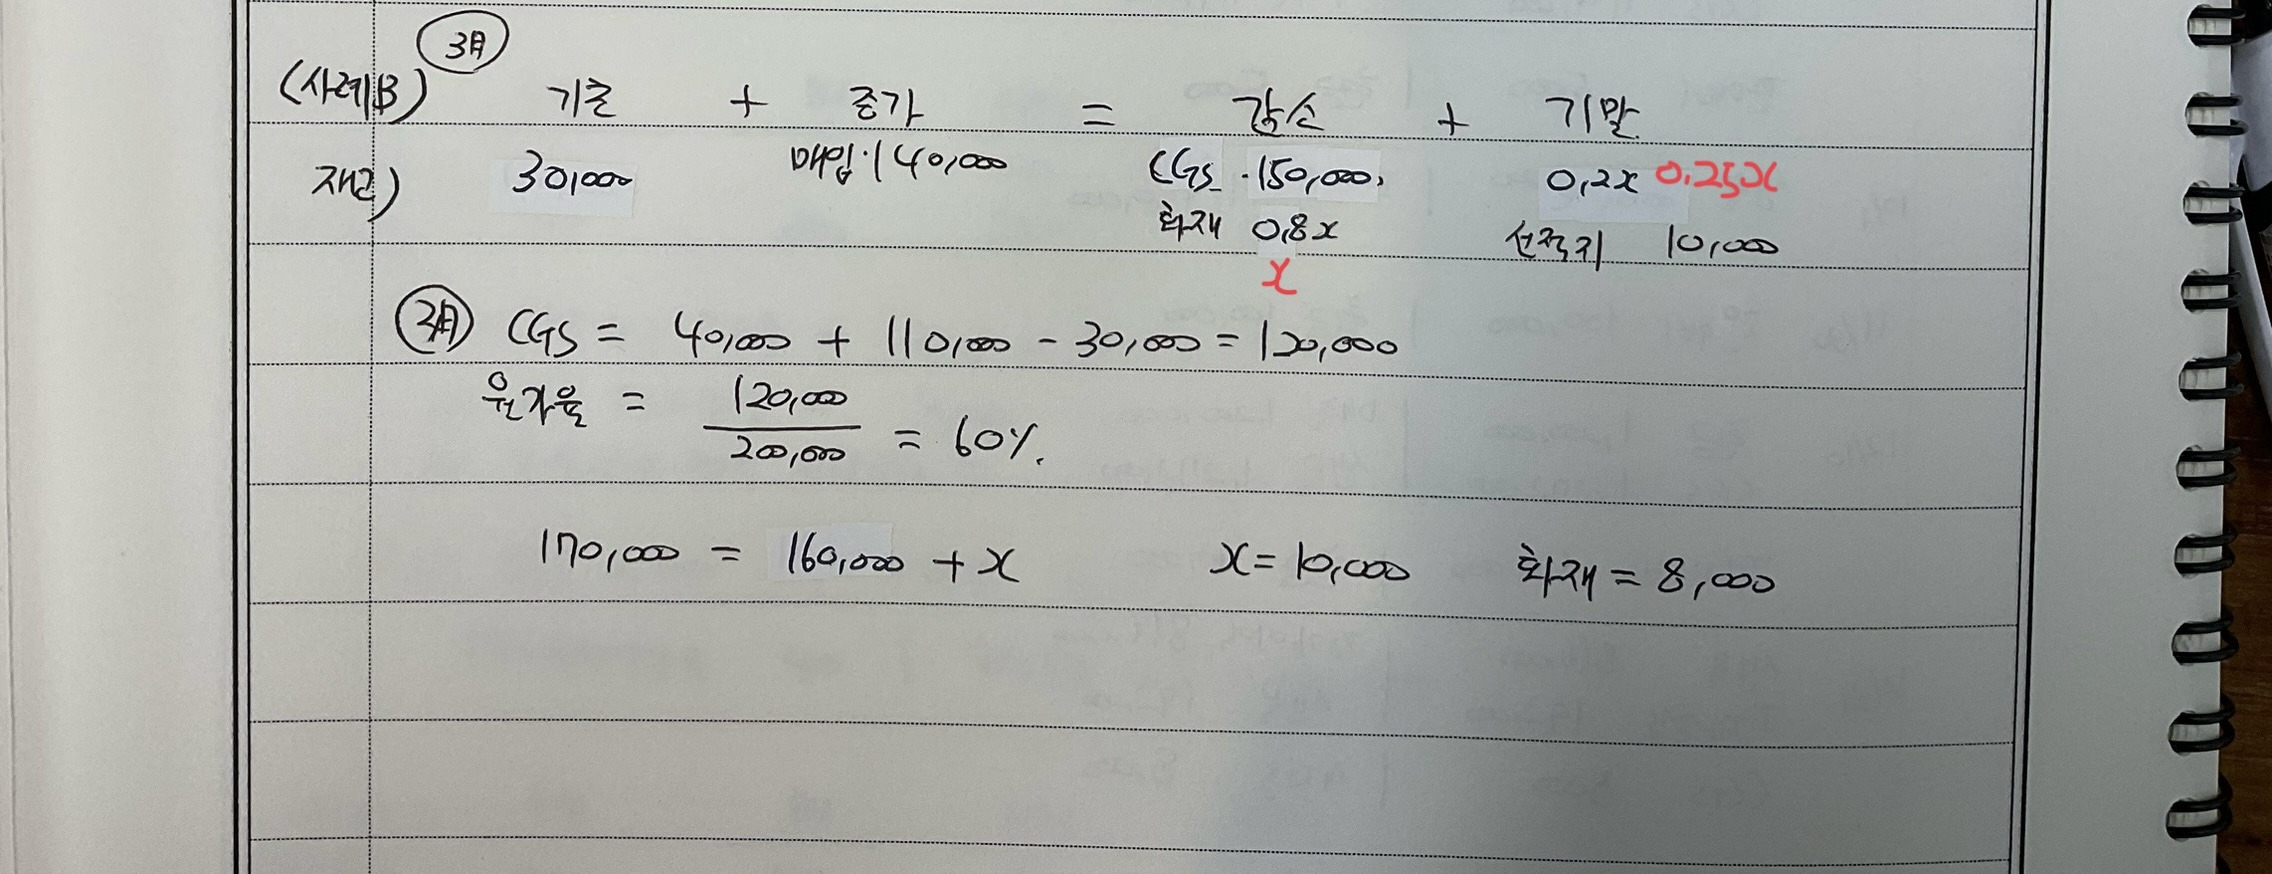 3月
(사례B) 기초 + 증가 = 감소 + 기말
재고) 30,000 매입·140,000 CGS·150,000, 0.2x 0.25x
화재 0.8x 선적지 10,000
x
3月 CGS = 40,000 + 110,000 - 30,000 = 120,000
원가율 = 120,000 / 200,000 = 60%.
170,000 = 160,000 + x x = 10,000 화재 = 8,000